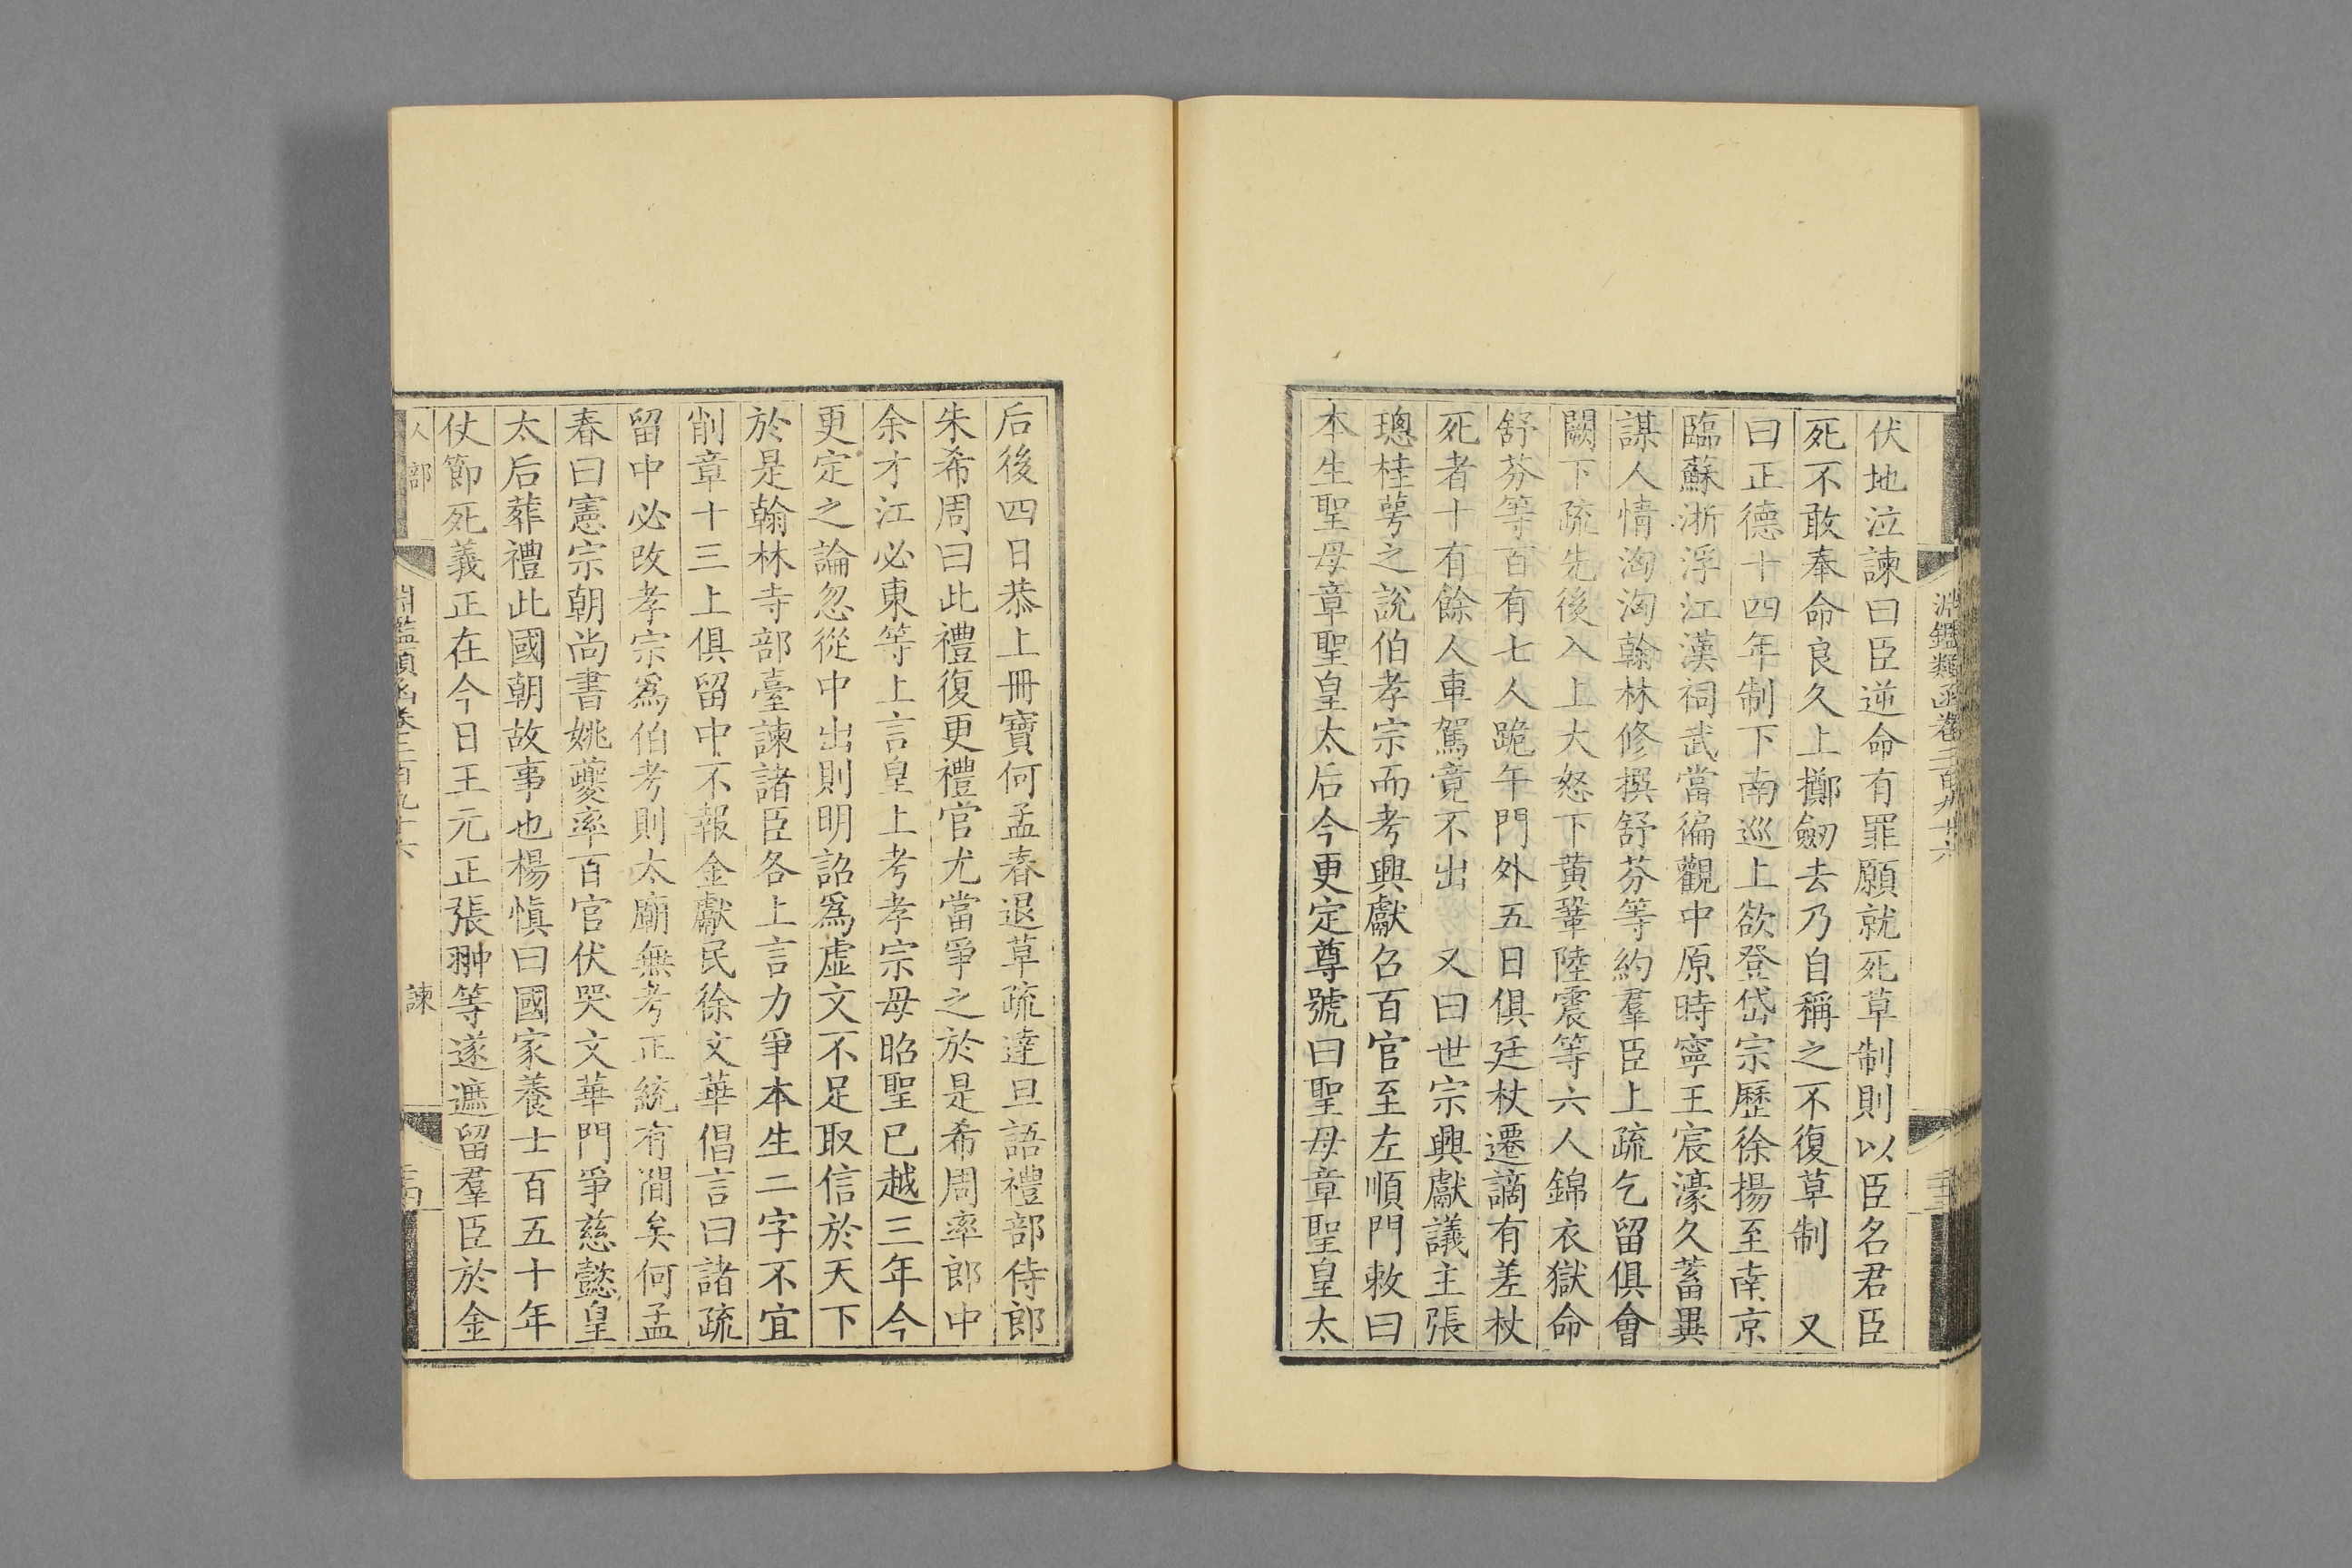 淵鑑類函卷二百九十六
伏地泣諫曰臣逆命有罪願就死草制則以臣名君臣
死不敢奉命良久上擲劒去乃自稱之不復草制 又
曰正德十四年制下南巡上欲登岱宗歷徐揚至南京
臨蘇浙浮江漢祠武當徧觀中原時寧王宸濠久蓄異
謀人情洶洶翰林修撰舒芬等約羣臣上疏乞留俱會
闕下疏先後入上大怒下黄鞏陸震等六人錦衣獄命
舒芬等百有七人跪午門外五日俱廷杖遷謫有差杖
死者十有餘人車駕竟不出 又曰世宗興獻議主張
璁桂萼之說伯孝宗而考興獻召百官至左順門敕曰
本生聖母章聖皇太后今更定尊號曰聖母章聖皇太
后後四日恭上冊寶何孟春退草疏達旦語禮部侍郎
朱希周曰此禮復更禮官尤當爭之於是希周率郎中
余才江必東等上言皇上考孝宗母昭聖已越三年今
更定之論忽從中出則明詔爲虚文不足取信於天下
於是翰林寺部臺諫諸臣各上言力爭本生二字不宜
削章十三上俱留中不報金獻民徐文華倡言曰諸疏
留中必改孝宗爲伯考則太廟無考正統有間矣何孟
春曰憲宗朝尚書姚夔率百官伏哭文華門爭慈懿皇
太后葬禮此國朝故事也楊愼曰國家養士百五十年
仗節死義正在今日王元正張翀等遂遮留羣臣於金
人部 淵鑑類函卷二百九十六 諫